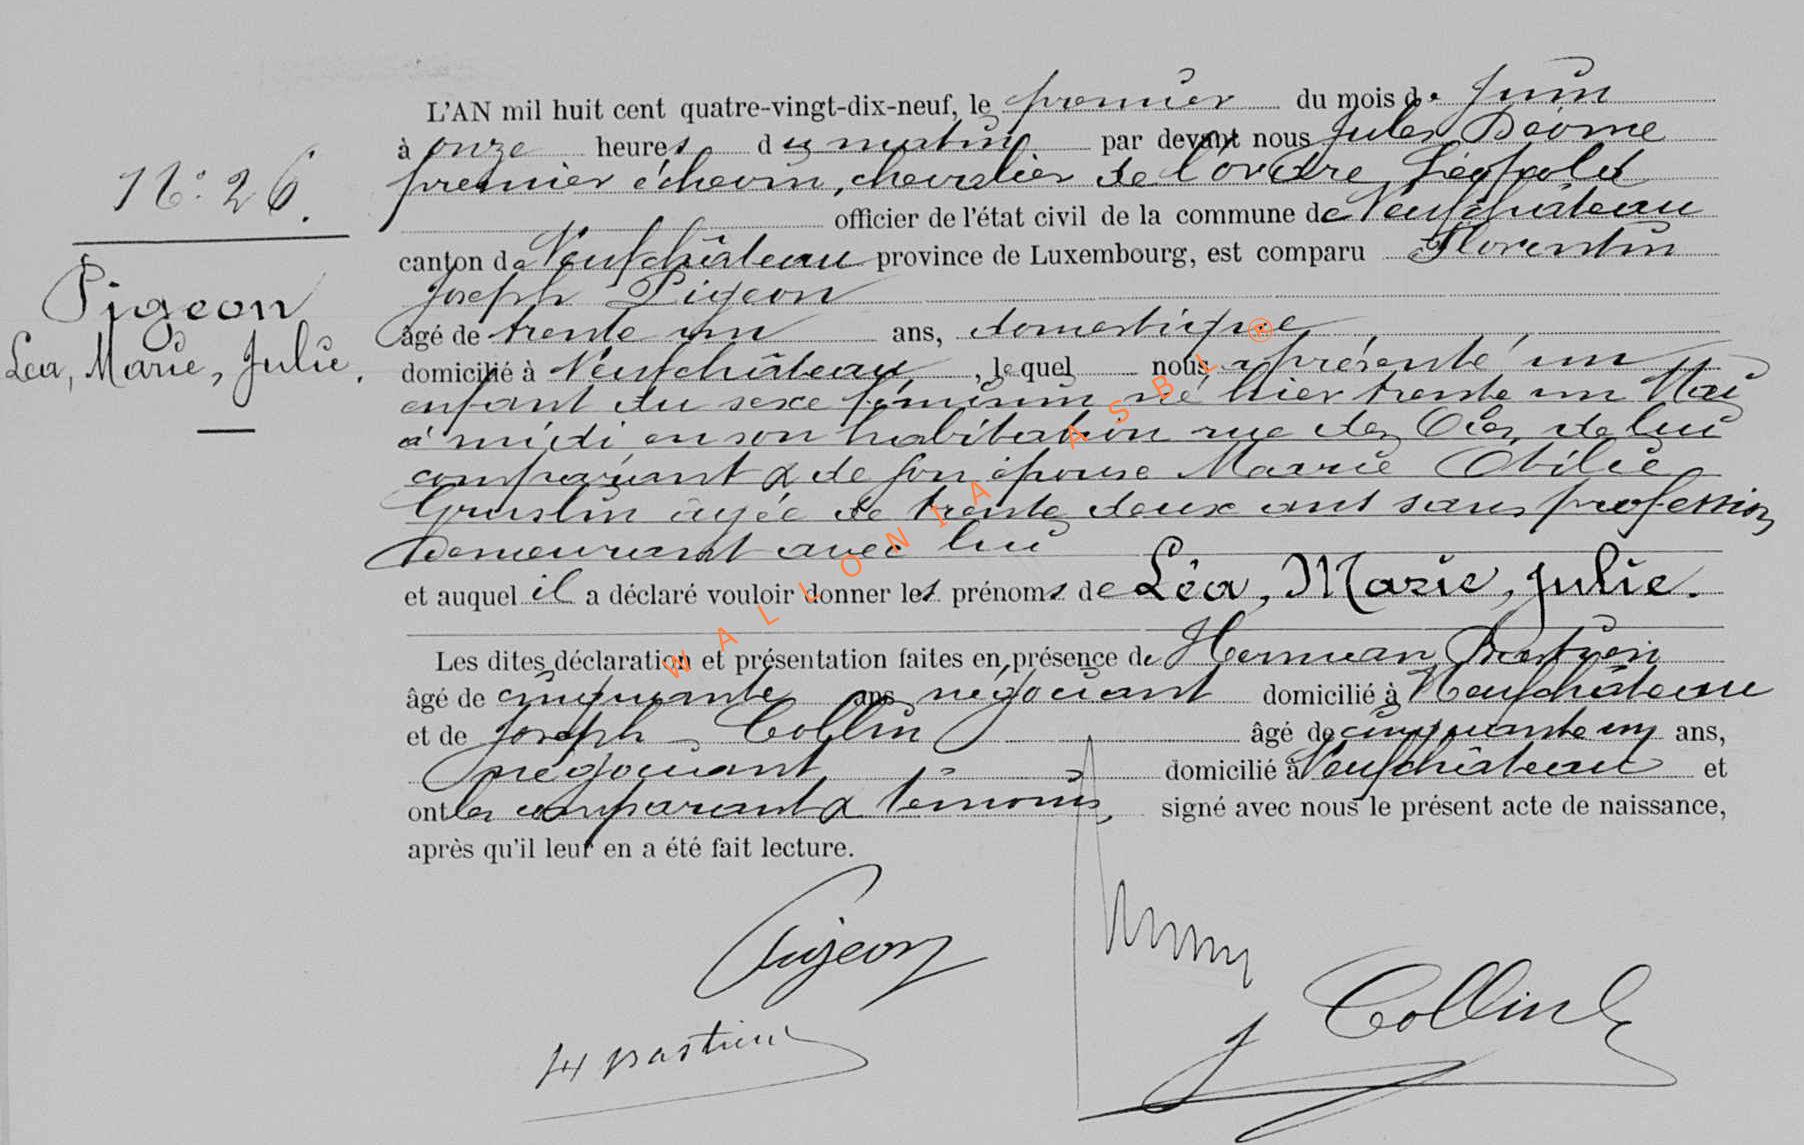 L'AN mil huit cent quatre-vingt-dix-neuf, le premier du mois de Juin
à onze heures du matin par devant nous Jules
premier échevin, chevalier de l'ordre Léopold
officier de l'état civil de la commune de Neufchâteau
canton de Neufchâteau province de Luxembourg, est comparu Florentin
Joseph Pigeon
âgé de trente un ans, domestique
domicilié à Neufchâteau, lequel nous a présenté un
enfant du sexe féminin né hier trente un Mai
à midi en son habitation rue des Oies, de lui
comparant & de son épouse Marie Otilie
âgée de trente deux ans sans profession
demeurant avec lui
et auquel il a déclaré vouloir donner les prénoms de Léa, Marie, Julie.
Les dites déclaration et présentation faites en présence de Herman Bastien
âgé de cinquante ans négociant domicilié à Neufchâteau
et de Joseph Collin âgé de cinquante un ans,
négociant domicilié à Neufchâteau et
ont les comparant & témoins signé avec nous le présent acte de naissance,
après qu'il leur en a été fait lecture.
N° 26.
Pigeon
Léa, Marie, Julie.
WALLONIA ASBL ®
Pigeon
H Bastien
J Collin